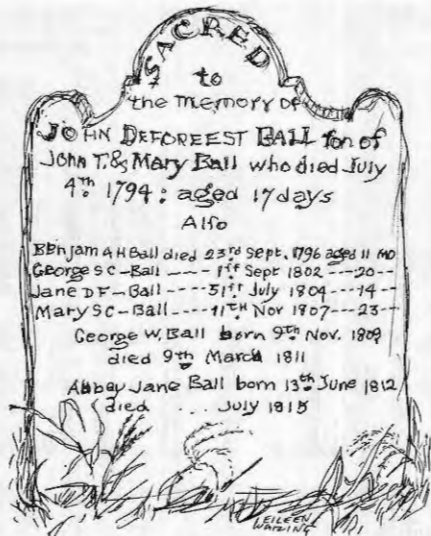 SACRED
to
the memory of
JOHN DEFOREEST BALL Son of
John T. & Mary Ball who died July
4th 1794: aged 17 days
Also
Benjam A H Ball died 23rd Sept. 1796 aged 11 mo
George S C - Ball ---- 1st Sept 1802 ---20--
Jane D F - Ball ---- 31st July 1804 ---14--
Mary S C - Ball ---- 11TH Nov 1807 --- 23--
George W. Ball born 9th Nov. 1809
died 9th March 1811
Abbey Jane Ball born 13th June 1812
died ... July 1815
EILEEN
WAIZING